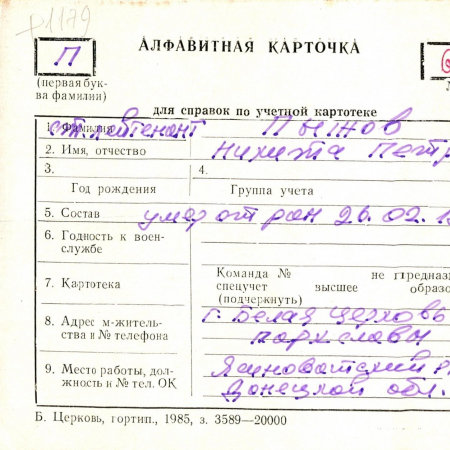 +1179
П
АЛФАВИТНАЯ КАРТОЧКА
(первая бук-
ва фамилии)
для справок по учетной картотеке
1. Фамилия ст. лейтенант Пынов
2. Имя, отчество Никита Петр
3.
4.
Год рождения
Группа учета
5. Состав умер от ран 26.02.1
6. Годность к воен-
службе
7. Картотека
Команда № не предназ
спецучет высшее образо
(подчеркнуть)
8. Адрес м-житель-
ства и № телефона
г. Белая Церковь
парк славы
9. Место работы, дол-
жность и № тел. ОК
Ясиноватский р
Донецкой обл.
Б. Церковь, гортип., 1985, з. 3589—20000